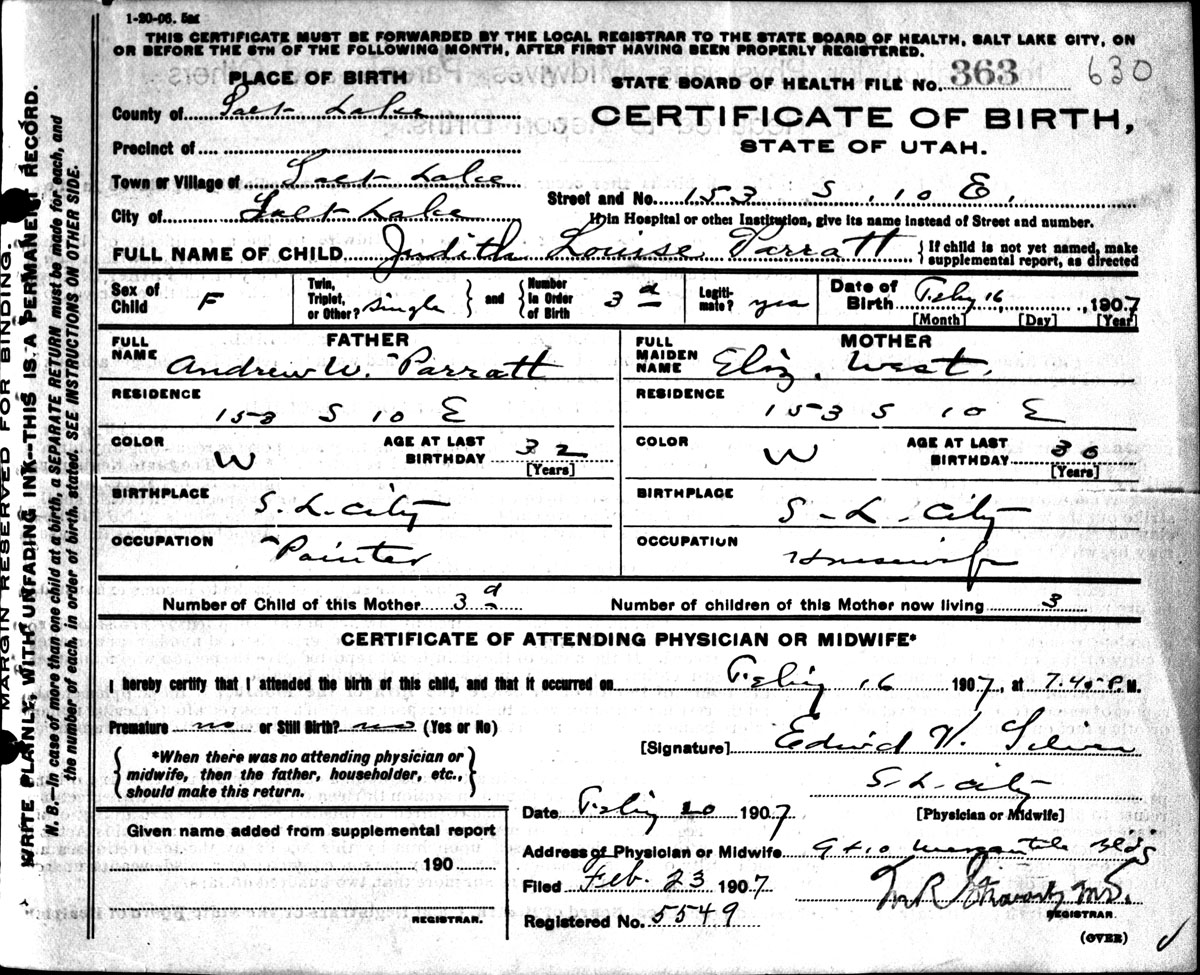 1-20-06. 5m
THIS CERTIFICATE MUST BE FORWARDED BY THE LOCAL REGISTRAR TO THE STATE BOARD OF HEALTH, SALT LAKE CITY, ON
OR BEFORE THE 5TH OF THE FOLLOWING MONTH, AFTER FIRST HAVING BEEN PROPERLY REGISTERED.
PLACE OF BIRTH
STATE BOARD OF HEALTH FILE No. 363 630
County of Salt Lake
CERTIFICATE OF BIRTH,
Precinct of
STATE OF UTAH.
Town or Village of Salt Lake
Street and No. 153 S. 10 E.
City of Salt Lake
If in Hospital or other Institution, give its name instead of Street and number.
FULL NAME OF CHILD Judith Louise Parratt {If child is not yet named, make supplemental report, as directed
Sex of Child F
Twin, Triplet, or Other? single } and { Number in Order of Birth 3d
Legitimate? yes
Date of Birth Feby 16, 1907
[Month] [Day] [Year]
FATHER
FULL NAME Andrew W. Parratt
RESIDENCE
153 S 10 E
COLOR W
AGE AT LAST BIRTHDAY 32
[Years]
BIRTHPLACE
S. L. City
OCCUPATION
Painter
MOTHER
FULL MAIDEN NAME Eliz. West.
RESIDENCE
153 S 10 E
COLOR W
AGE AT LAST BIRTHDAY 30
[Years]
BIRTHPLACE
S. L. City
OCCUPATION
Housewife
Number of Child of this Mother 3d
Number of children of this Mother now living 3
CERTIFICATE OF ATTENDING PHYSICIAN OR MIDWIFE*
I hereby certify that I attended the birth of this child, and that it occurred on Feby 16 1907, at 7.40 P.M.
Premature no or Still Birth? no (Yes or No)
[Signature] W.
*When there was no attending physician or
midwife, then the father, householder, etc.,
should make this return.
S. L. City
[Physician or Midwife]
Date Feby 20 1907
Given name added from supplemental report
190
REGISTRAR.
Address of Physician or Midwife 9 + 10 Mercantile Bldg
Filed Feb. 23 1907
M.D.
REGISTRAR.
Registered No. 5549
(OVER)
MARGIN RESERVED FOR BINDING.
WRITE PLAINLY, WITH UNFADING INK--THIS IS A PERMANENT RECORD.
N. B.—In case of more than one child at a birth, a SEPARATE RETURN must be made for each, and
the number of each, in order of birth, stated. SEE INSTRUCTIONS ON OTHER SIDE.